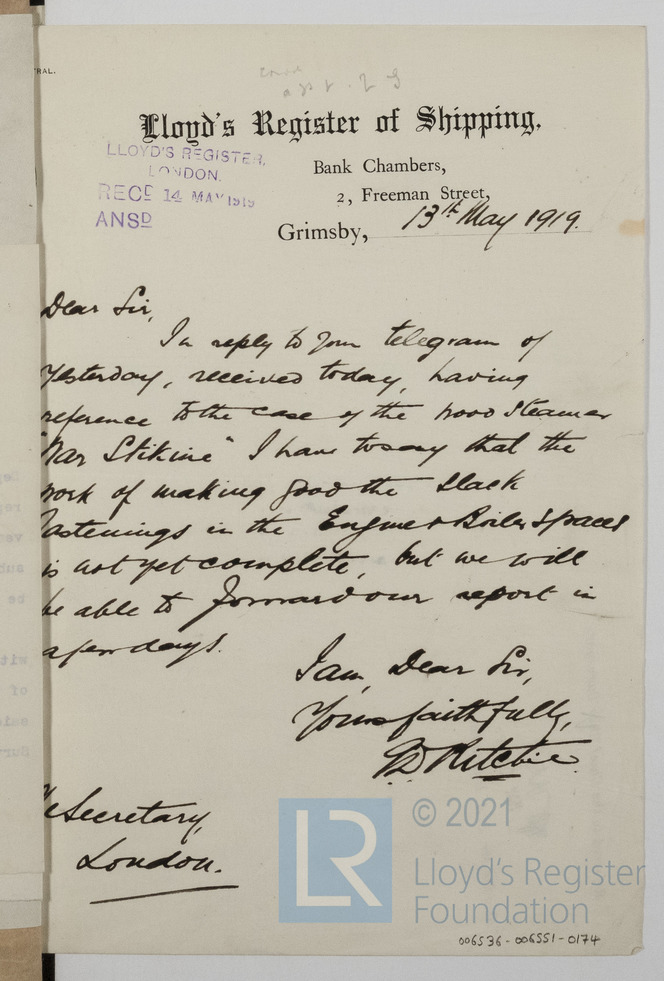 RAL.
Lloyd's Register of Shipping.
LLOYD'S REGISTER,
LONDON.
RECD 14 MAY 1919
ANSD
Bank Chambers,
2, Freeman Street,
Grimsby, 13th May 1919.
Dear Sir,
In reply to your telegram of
yesterday, received today, having
reference to the case of the wood steamer
"War Stikine" I have to say that the
work of making good the slack
fastenings in the Engine & Boiler spaces
is not yet complete, but we will
be able to forward our report in
a few days.
I am, Dear Sir,
Yours faithfully,
D Ritchie
Secretary,
London.
LR
© 2021
Lloyd's Register
Foundation
006536-006551-0174